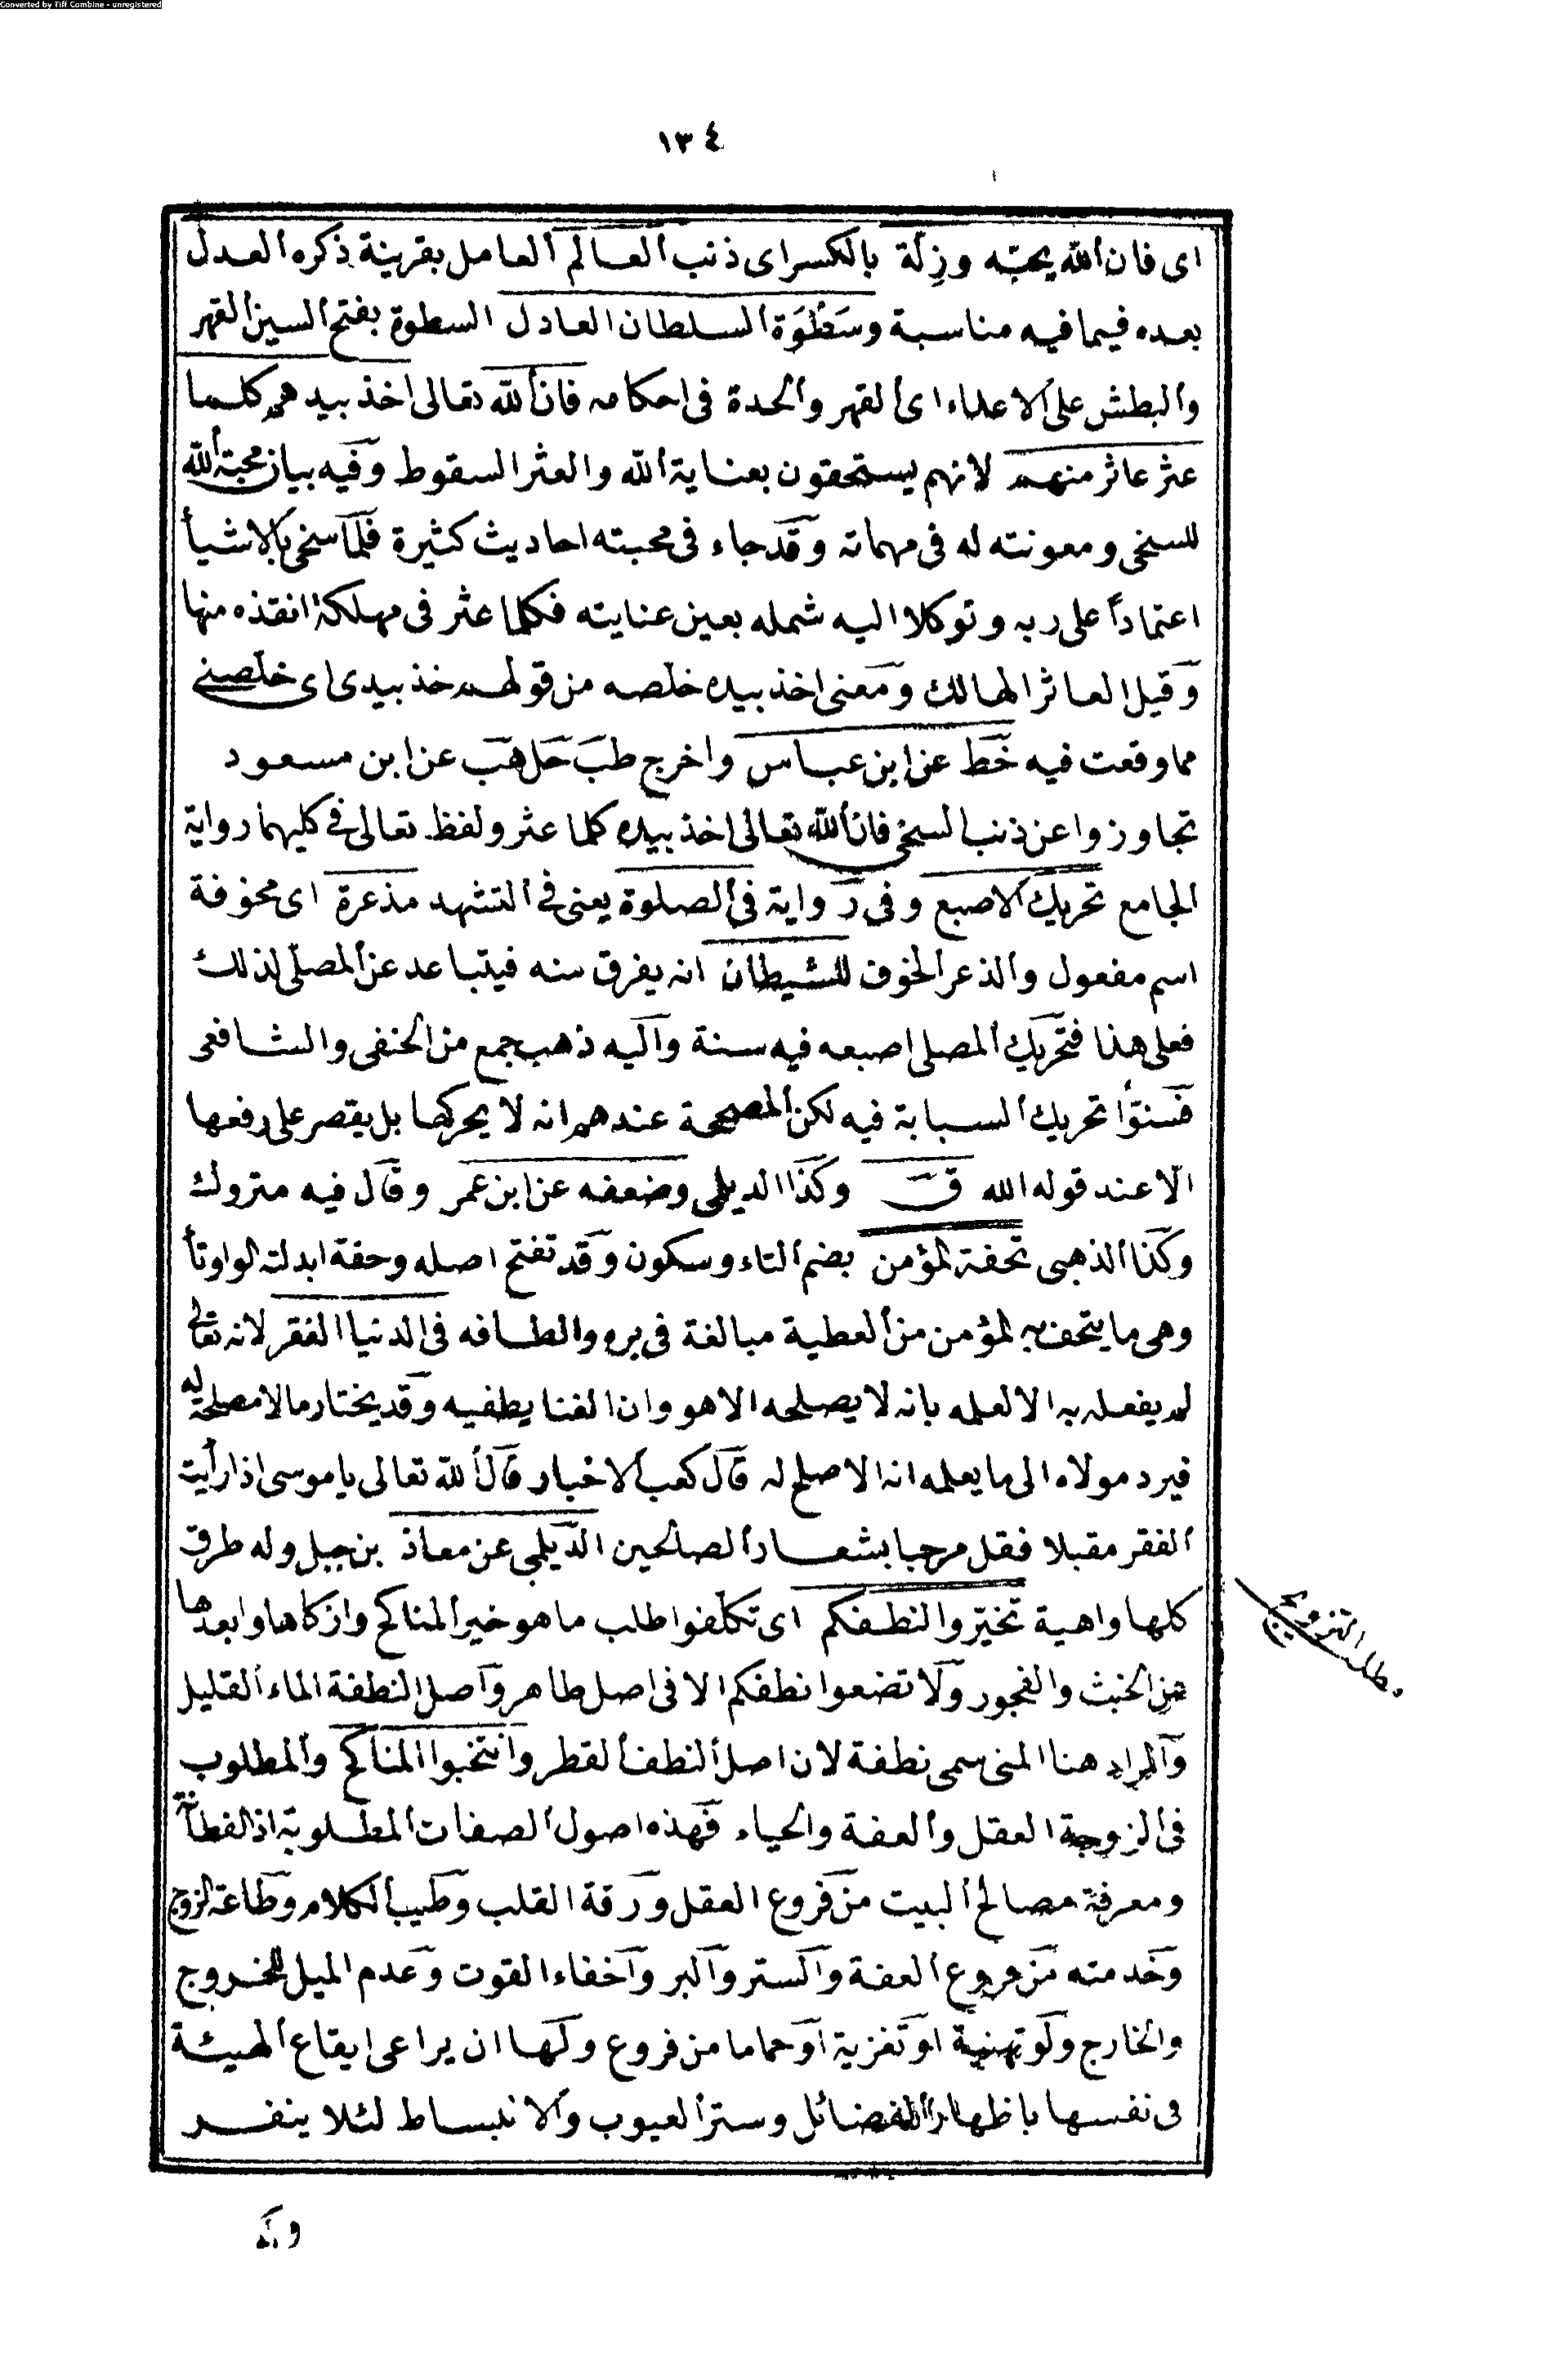 Converted by Tiff Combine - unregistered
١٣٤
اى فان الله يحبّه وزِلّة بالكسر اى ذنب العالم العامل بقرينة ذكره العدل
بعده فيما فيه مناسبة وسَطْوَة السلطان العادل السطوة بفتح السين القهر
والبطش على الاعداء اى القهر والحدة فى احكامه فان الله تعالى اخذ بيدهم كلما
عثر عاثر منهم لانهم يستحقون بعناية الله والعثر السقوط وفيه بيان محبة الله
للسخى ومعونته له فى مهماته وقد جاء فى محبته احاديث كثيرة فلما سخى بالاشيا
اعتماداً على ربه وتوكلا اليه شمله بعين عنايته فكلما عثر فى مهلكة انقذه منها
وقيل العاثر الهالك ومعنى اخذ بيده خلصه من قولهم خذ بيدى اى خلصنى
مما وقعت فيه خط عن ابن عباس واخرج طب حل هب عن ابن مسعود
تجاوزوا عن ذنب السخى فان الله تعالى اخذ بيده كلما عثر ولفظ تعالى فى كليهما رواية
الجامع تحريك الاصبع وفى رواية فى الصلوة يعنى فى التشهد مذعرة اى مخوفة
اسم مفعول والذعر الخوف للشيطان انه يفرق منه فيتباعد عن المصلى لذلك
فعلى هذا فتحريك المصلى اصبعه فيه سنة واليه ذهب جمع من الحنفى والشافعى
فسنوا تحريك السبابة فيه لكن المصححة عندهم انه لا يحركها بل يقصر على رفعها
الا عند قوله الله ق وكذا الديلمى وضعفه عن ابن عمر وقال فيه متروك
وكذا الذهبى تحفة المؤمن بضم التاء وسكون وقد تفتح اصله وحفة ابدلت الواو تأ
وهى ما يتحف به المؤمن من العطية مبالغة فى بره والطافه فى الدنيا الفقر لانه تعالى
لم يفعله به الا لعلمه بانه لا يصلحه الا هو وان الغنا يطفيه وقد يختار ما لا مصلحة له
فيرد مولاه الى ما يعلمه انه الاصلح له قال كعب الاخبار قال الله تعالى يا موسى اذا رأيت
الفقر مقبلا فقل مرحبا بشعار الصالحين الديلمى عن معاذ بن جبل وله طرق
كلها واهية تخيّروا لنطفكم اى تكلّفوا طلب ما هو خير المناكح وازكاها وابعدها
من الخبث والفجور ولا تضعوا نطفكم الا فى اصل طاهر واصل النطفة الماء القليل
والمراد هنا المنى سمى نطفة لان اصل النطف القطر وانتخبوا المناكح والمطلوب
فى الزوجة العقل والعفة والحياء فهذه اصول الصفات المطلوبة اذ الفطانة
ومعرفة مصالح البيت من فروع العقل ورقة القلب وطيب الكلام وطاعة الزوج
وخدمته من فروع العفة والستر والبر واخفاء القوت وعدم الميل للخروج
والخارج ولو تهنية او تغزية او حماما من فروع ولها ان يراعى ايقاع الهيئة
فى نفسها باظهار الفضائل وستر العيوب والانبساط لئلا ينفر
مطلب التزويج